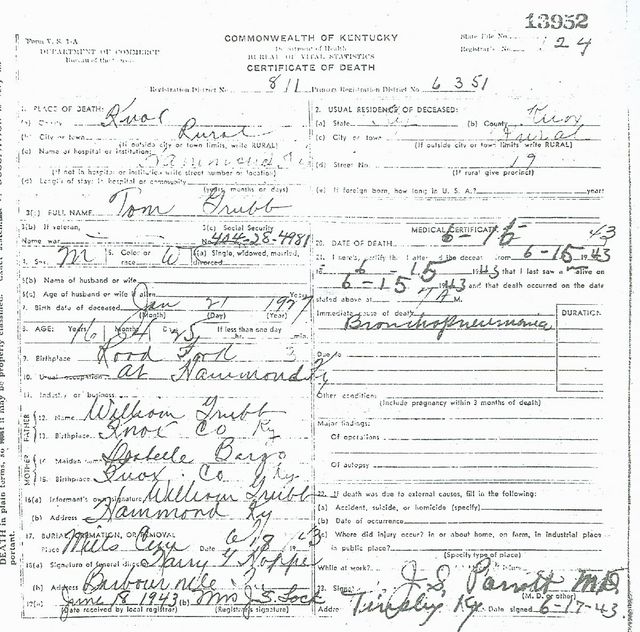 13952
Form V. S. 1-A
COMMONWEALTH OF KENTUCKY
State File No.
DEPARTMENT OF COMMERCE
Department of Health
Registrar's No. 124
Bureau of the
BUREAU OF VITAL STATISTICS
CERTIFICATE OF DEATH
Registration District No. 811 Primary Registration District No. 6351
1. PLACE OF DEATH:
(a) County Knox
(b) City or town Rural
(If outside city or town limits, write RURAL)
(c) Name of hospital or institution:
Hammond, Ky
(If not in hospital or institution write street number or location)
(d) Length of stay: in hospital or community
(years, months or days)
2. USUAL RESIDENCE OF DECEASED:
(a) State Ky (b) County Knox
(c) City or town Rural
(If outside city or town limits write RURAL)
(d) Street No. 19
(If rural give precinct)
(e) If foreign born, how long in U. S. A.? years
3(a) FULL NAME Tom Grubb
3(b) If veteran, 3(c) Social Security
Name war No. 404-28-4981
4. Sex M 5. Color or race W 6(a) Single, widowed, married, divorced
6(b) Name of husband or wife
6(c) Age of husband or wife if alive Years
7. Birth date of deceased Jan 21
(Month) (Day) (Year)
8. AGE: Years 16 Months Days 25 If less than one day
hr. min.
9. Birthplace
10. Usual occupation at Hammond Ky
11. Industry or business
FATHER
12. Name William Grubb
13. Birthplace Knox Co Ky
MOTHER
14. Maiden name Isabelle Bargo
15. Birthplace Knox Co Ky
16(a) Informant's own signature William Grubb
(b) Address Hammond Ky
17. BURIAL, CREMATION, OR REMOVAL
Place Mills Cem Date 6/18 43
18(a) Signature of funeral director Harry Y Hopper
(b) Address Barbourville
19(a) June 18 1943 (b) Mrs J. S. Lock
(Date received by local registrar) (Registrar's signature)
MEDICAL CERTIFICATE
20. DATE OF DEATH: 6-15 43
21. I hereby certify that I attended the deceased from 6-15 1943
to 6-15 1943 that I last saw alive on
6-15 1943 and that death occurred on the date
stated above at 7 A M.
Immediate cause of death DURATION
Bronchopneumonia
Due to
Other conditions
(Include pregnancy within 3 months of death)
Major findings:
Of operations
Of autopsy
22. If death was due to external causes, fill in the following:
(a) Accident, suicide, or homicide (specify)
(b) Date of occurrence
(c) Where did injury occur? in or about home, on farm, in industrial place
in public place?
(Specify type of place)
While at work?
23. Signed J. S. Parrott M.D.
(M. D. or other)
Address Tinsley Ky. Date signed 6-17-43
DEATH in plain terms, so that it may be properly classified.
portant.